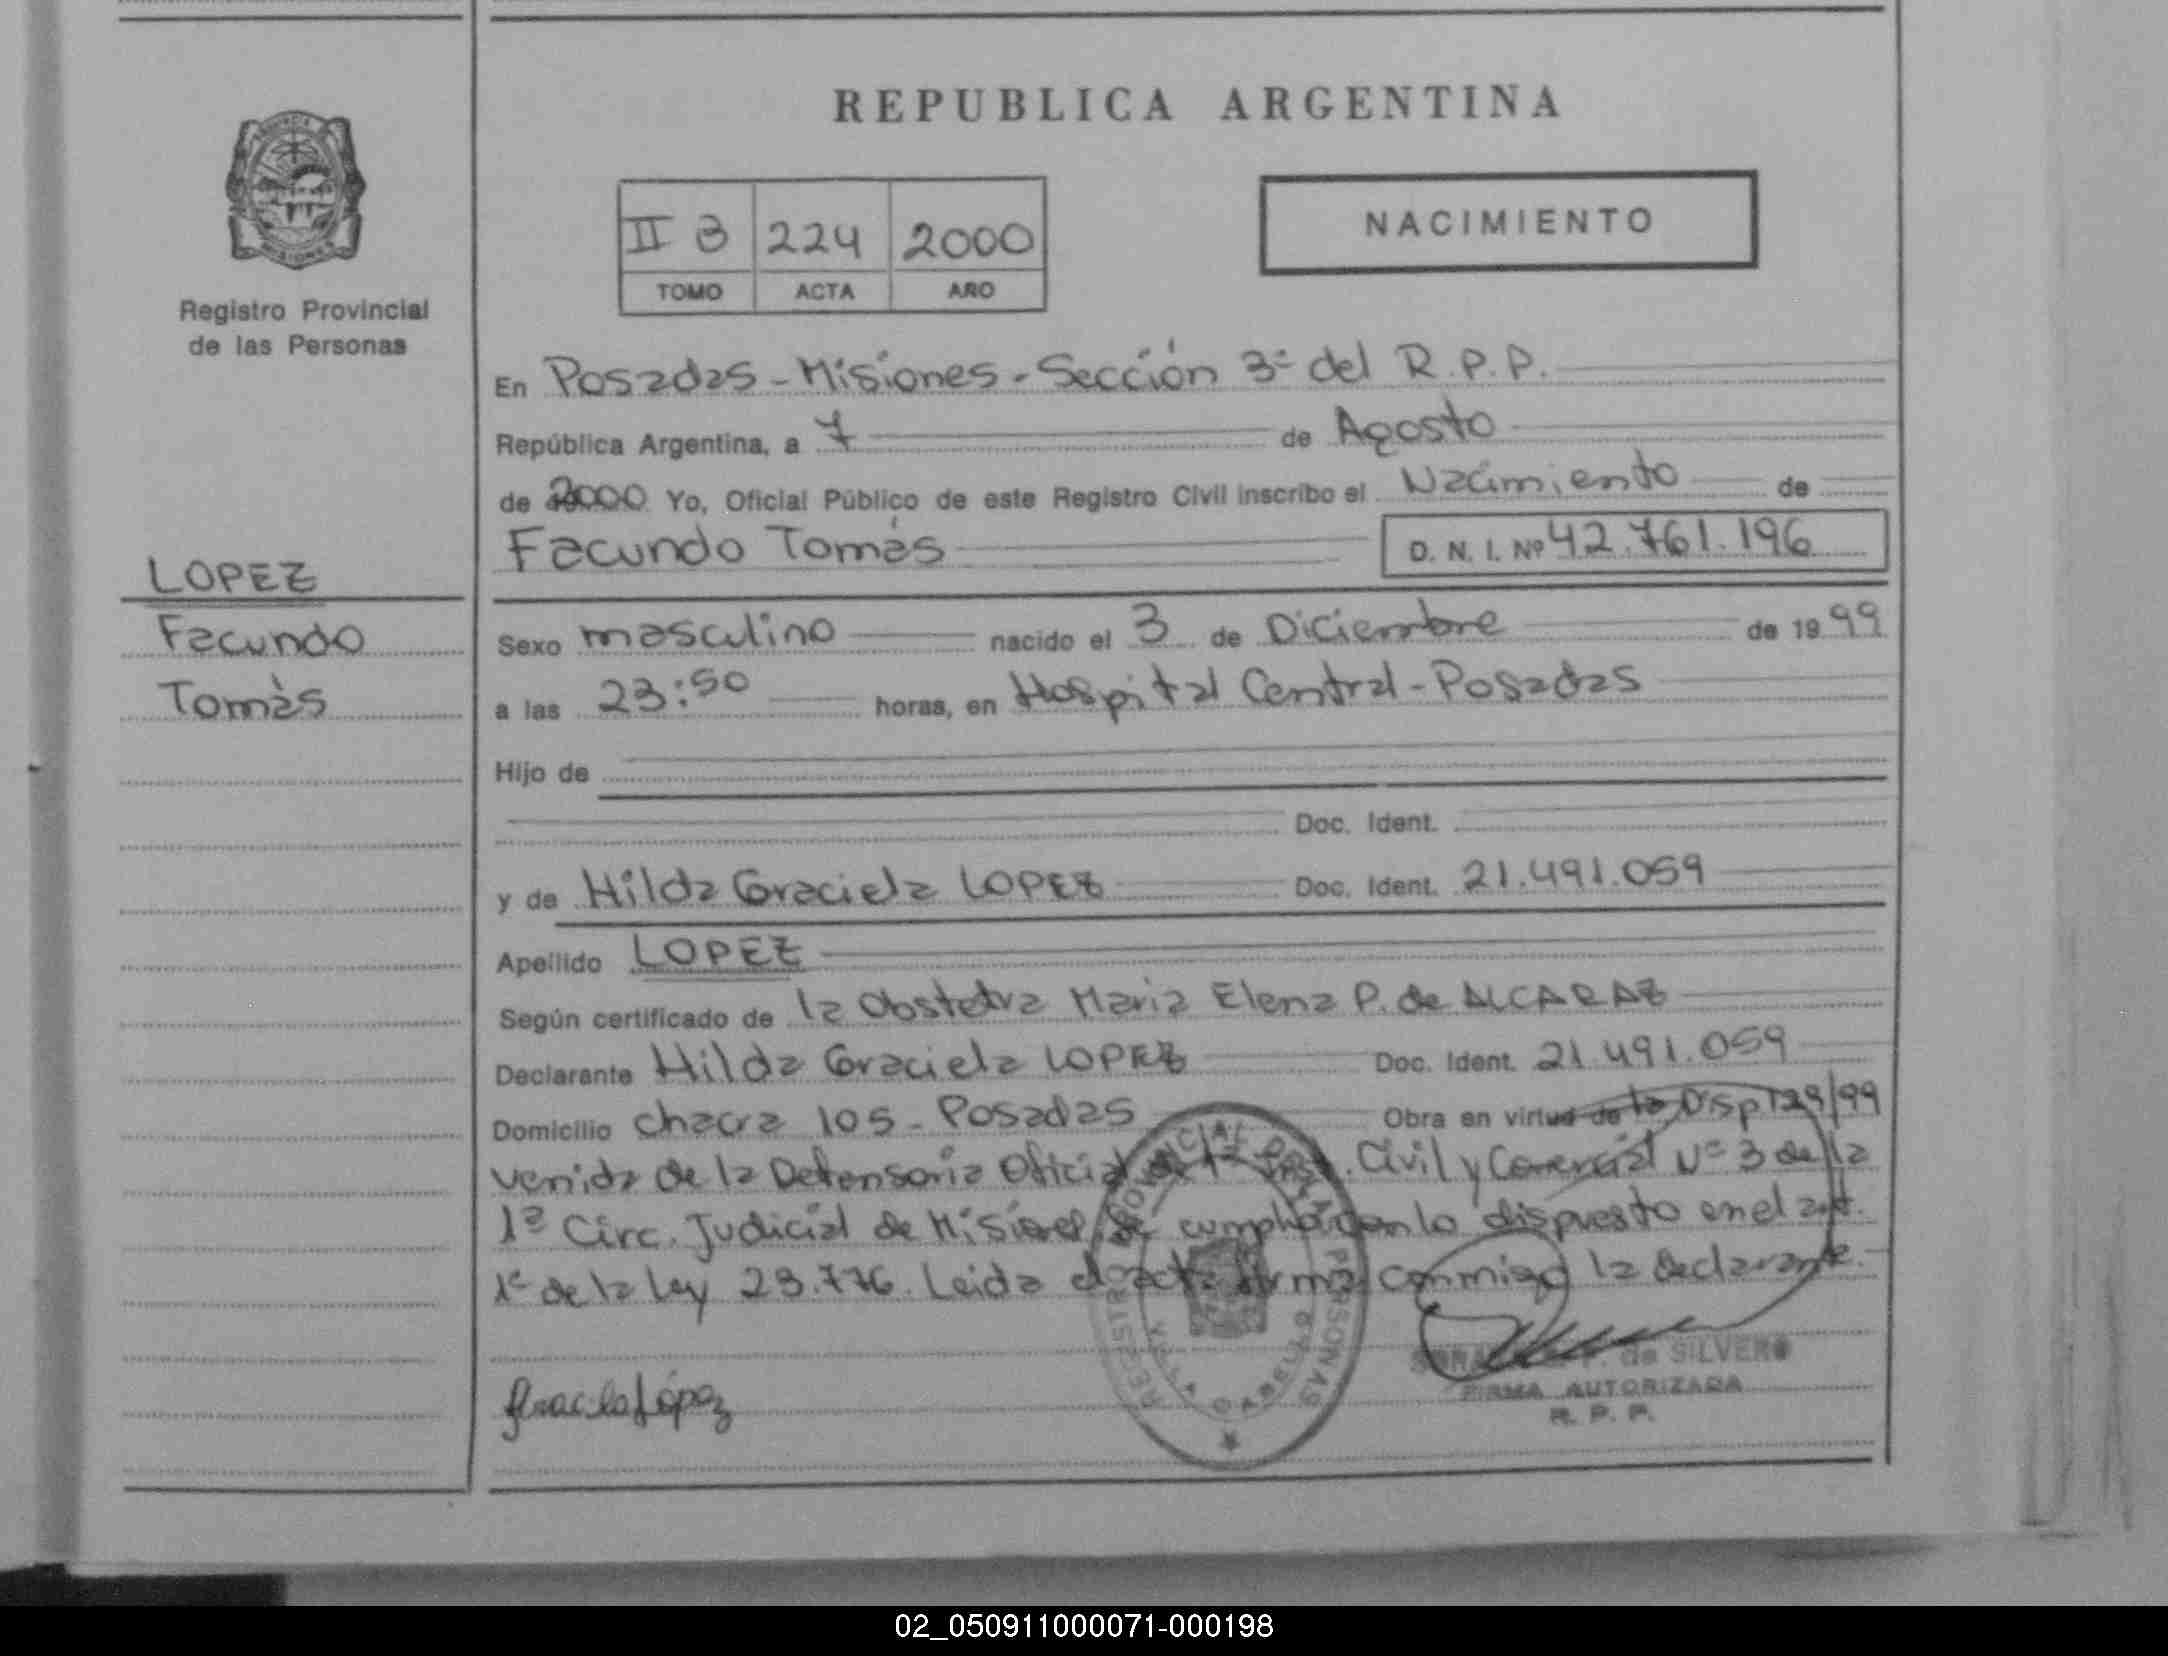 REPUBLICA ARGENTINA
II B 224 2000
TOMO ACTA AÑO
NACIMIENTO
Registro Provincial
de las Personas
LOPEZ
Facundo
Tomás
En Posadas - Misiones - Sección 3ª del R.P.P.
República Argentina, a 7 de Agosto
de 2000 Yo, Oficial Público de este Registro Civil inscribo el Nacimiento de
Facundo Tomás D. N. I. Nº 42.761.196
Sexo masculino nacido el 3 de Diciembre de 19 99
a las 23:50 horas, en Hospital Central - Posadas
Hijo de
Doc. Ident.
y de Hilda Graciela LOPEZ Doc. Ident. 21.491.059
Apellido LOPEZ
Según certificado de la Obstetra Maria Elena P. de ALCARAZ
Declarante Hilda Graciela LOPEZ Doc. Ident. 21.491.059
Domicilio chacra 105 - Posadas Obra en virtud de la Disp 129/99
venida de la Defensoria Oficial Civil y Comercial Nº 3 de la
1ª Circ. Judicial de Misiones, se cumplió con lo dispuesto en el art.
1º de la Ley 23.776. Leida el acta firma conmigo la declarante.
Graciela López
REGISTRO PROVINCIAL DE LAS PERSONAS
VILLA CABELLO
de SILVERO
FIRMA AUTORIZADA
R. P. P.
PROVINCIA DE MISIONES
02_050911000071-000198